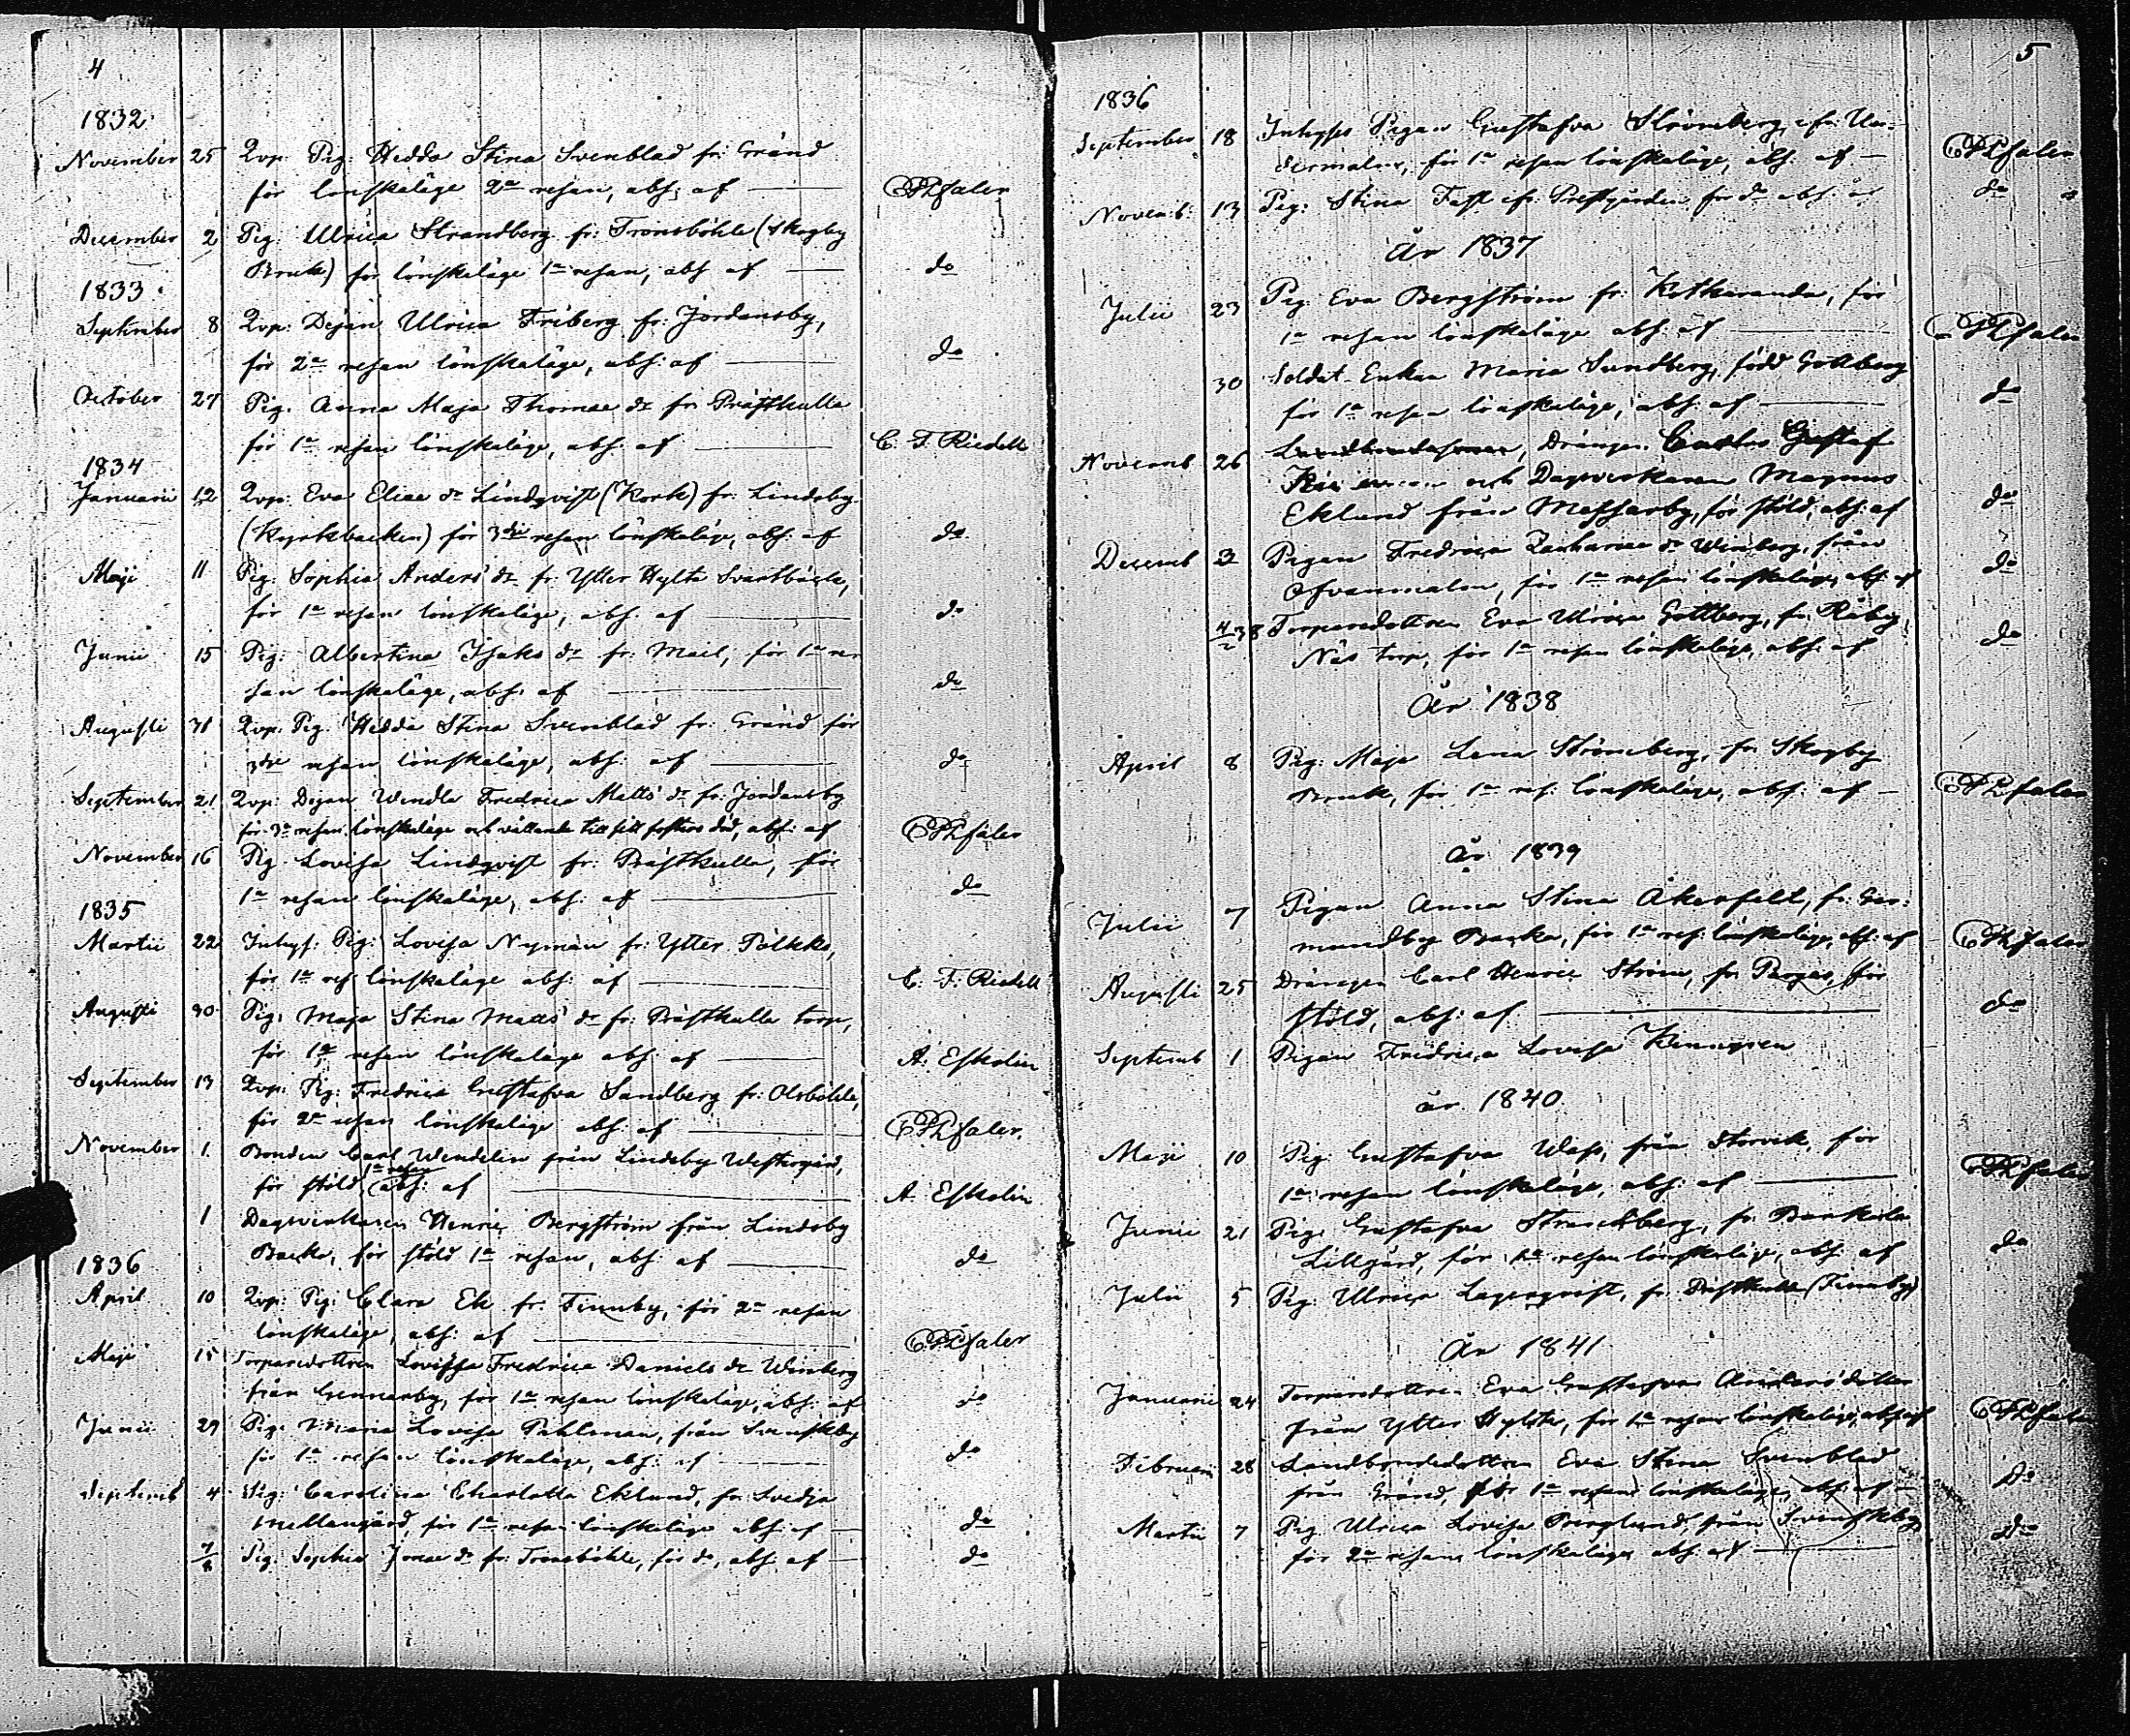 4
1832
November 25 Qvp: Pig: Hedda Stina Svenblad fr: Gränd
för lönskaläge 2a resan, abs: af — CPhfaler
December 2 Pig: Ulrica Strandberg fr: Tronsböhle (Skogby
Bruk) för lönskaläge 1a resan, abs: af — do
1833
September 8 Qvp: Dejan Ulrica Friberg fr: Jordansby,
för 2a resan lönskaläge, abs: af — do
October 27 Pig: Anna Maja Thomae dr fr: Prästkulla
för 1a resan lönskaläge, abs: af — C. F. Riedell
1834
Januarii 12 Qvp: Eva Eliae dr Lindqvist (Kork) fr: Lindsby
(Kyrkbacken) för 3die resan lönskaläge, abs: af do
Maji 11 Pig: Sophia Anders dr fr: Ytter Hylta Svartbäcks,
för 1a resan lönskaläge, abs: af — do
Junii 15 Pig: Albertina Isaks dr fr: Mail, för 1a re
san lönskaläge, abs: af — do
Augusti 31 Qvp: Pig: Hedda Stina Svenblad fr: Gränd för
3die resan lönskaläge, abs: af — do
September 21 Qvp: Dejan Wendla Fredrica Matts dr fr: Jordansby
för 3e resan lönskaläge och vållande till sitt fosters död, abs: af CPhfaler
November 16 Pig: Lovisa Lindqvist fr: Prästkulla, för
1a resan lönskaläge, abs: af — do
1835
Martii 22 Inhys: Pig: Lovisa Nyman fr: Ytter Pölkko,
för 1a res: lönskaläge abs: af — C. F. Riedell
Augusti 30 Pig: Maja Stina Matts dr fr: Prästkulla torp,
för 1a resan lönskaläge abs: af — A. Eskolin
September 13 Qvp: Pig: Fredrica Gustafva Sandberg fr: Olsböhle,
för 2a resan lönskaläge abs: af — CPhfaler.
November 1 Bonden Carl Wendelin från Lindsby Westergård,
för stöld 1a resan abs: af — A. Eskolin
1 Dagsverkaren Henric Bergström från Lindsby
Backa, för stöld 1a resan, abs: af — do
1836
April 10 Qvp: Pig: Clara Ek fr: Finnby, för 2a resan
lönskaläge, abs: af — CPhfaler
Maji 15 Torparedottren Lovissa Fredrica Daniels dr Winberg
från Gennarby, för 1a resan lönskaläge, abs: af do
Junii 29 Pig: Maria Lovisa Pahlman, från Svenskby
för 1a resan lönskaläge, abs: af do
Septemb 4 Pig: Carolina Charlotta Eklund, fr: Svedja
Mellangård, för 1a resan lönskaläge abs: af — do
7/8 Pig: Sophia Jonae dr fr: Tronsböhle, för do, abs: af — do
5
1836
September 18 Inhyses Pigan Gustafva Strömberg,
för 1a resan lönskaläge, abs: af — CPhfaler
Novemb: 13 Pig: Stina Fast ifr: Prestgården för do abs: af do
År 1837
Julii 23 Pig: Eva Bergström fr: Kotkaranda, för
1a resan lönskaläge abs: af — CPhfaler
30 Soldat-Enkan Maria Sundberg, född Gottberg
för 1a resan lönskaläge, abs: af — do
Novemb 26 Drängen Gustaf
och Dagsverkaren Magnus
Eklund från Massarby, för stöld, abs: af do
Decemb 3 Pigan Fredrica Zachariae dr Winberg, från
Ofvanmalm, för 1a resan lönskaläge, abs: af do
Torparedottren Eva Ulrica Gottberg, fr: Råby
Näs torp, för 1a resan lönskaläge, abs: af do
År 1838
April 8 Pig: Maja Lena Strömberg, fr: Skogby
Bruk, för 1a res: lönskaläge, abs: af — CPhfaler
År 1839
Julii 7 Pigan Anna Stina Åkerfelt, fr: Ger-
mundby Backa, för 1a res: lönskaläge, abs: af CPhfaler
Augusti 25 Drängen Carl Henric Ström, fr: Pargas, för
stöld, abs: af — do
Septemb 1 Pigan Fredrica Lovisa
år 1840
Maji 10 Pig: Gustafva Wass, från Storvik, för
1a resan lönskaläge, abs: af — CPhfaler
Junii 21 Pig: Gustafva Strandberg, fr:
Lillgård, för 1a resan lönskaläge, abs: af do
Julii 5 Pig: Ulrica Lagerqvist, fr: Prästkulla (Finnby)
År 1841
Januarii 24 Torparedottren Eva Gustafva Andersdotter
från Ytter Hylta, för 1a resan lönskaläge, abs: af CPhfaler
Februarii 28 Landbondedottren Eva Stina Svenblad
från Gränd, för 1a resan lönskaläge, abs: af — Do
Martii 7 Pig: Ulrica Lovisa Berglund, från Svenskby
för 2a resan lönskaläge abs: af — Do